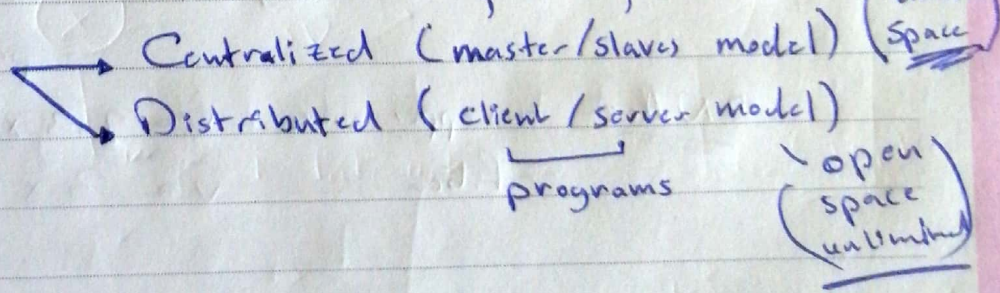 Centralized (master/slaves model) (space)
Distributed (client/server model)
programs
open
space